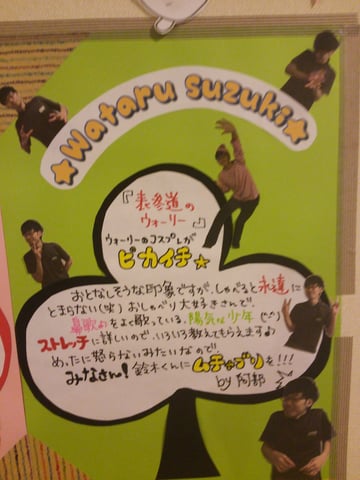 ★Wataru Suzuki★
『表参道の
ウォーリー』
ウォーリーのコスプレが
ピカイチ☆
おとなしそうな印象ですが、しゃべると永遠に
とまらない(笑)おしゃべり大好きさんです。
鼻歌♪をよく歌っている、陽気な少年(^^)
ストレッチに詳しいので、いろいろ教えてもらえますよ
めったに怒らないみたいなので
みなさん!鈴木くんにムチャブリを!!!
by 阿部